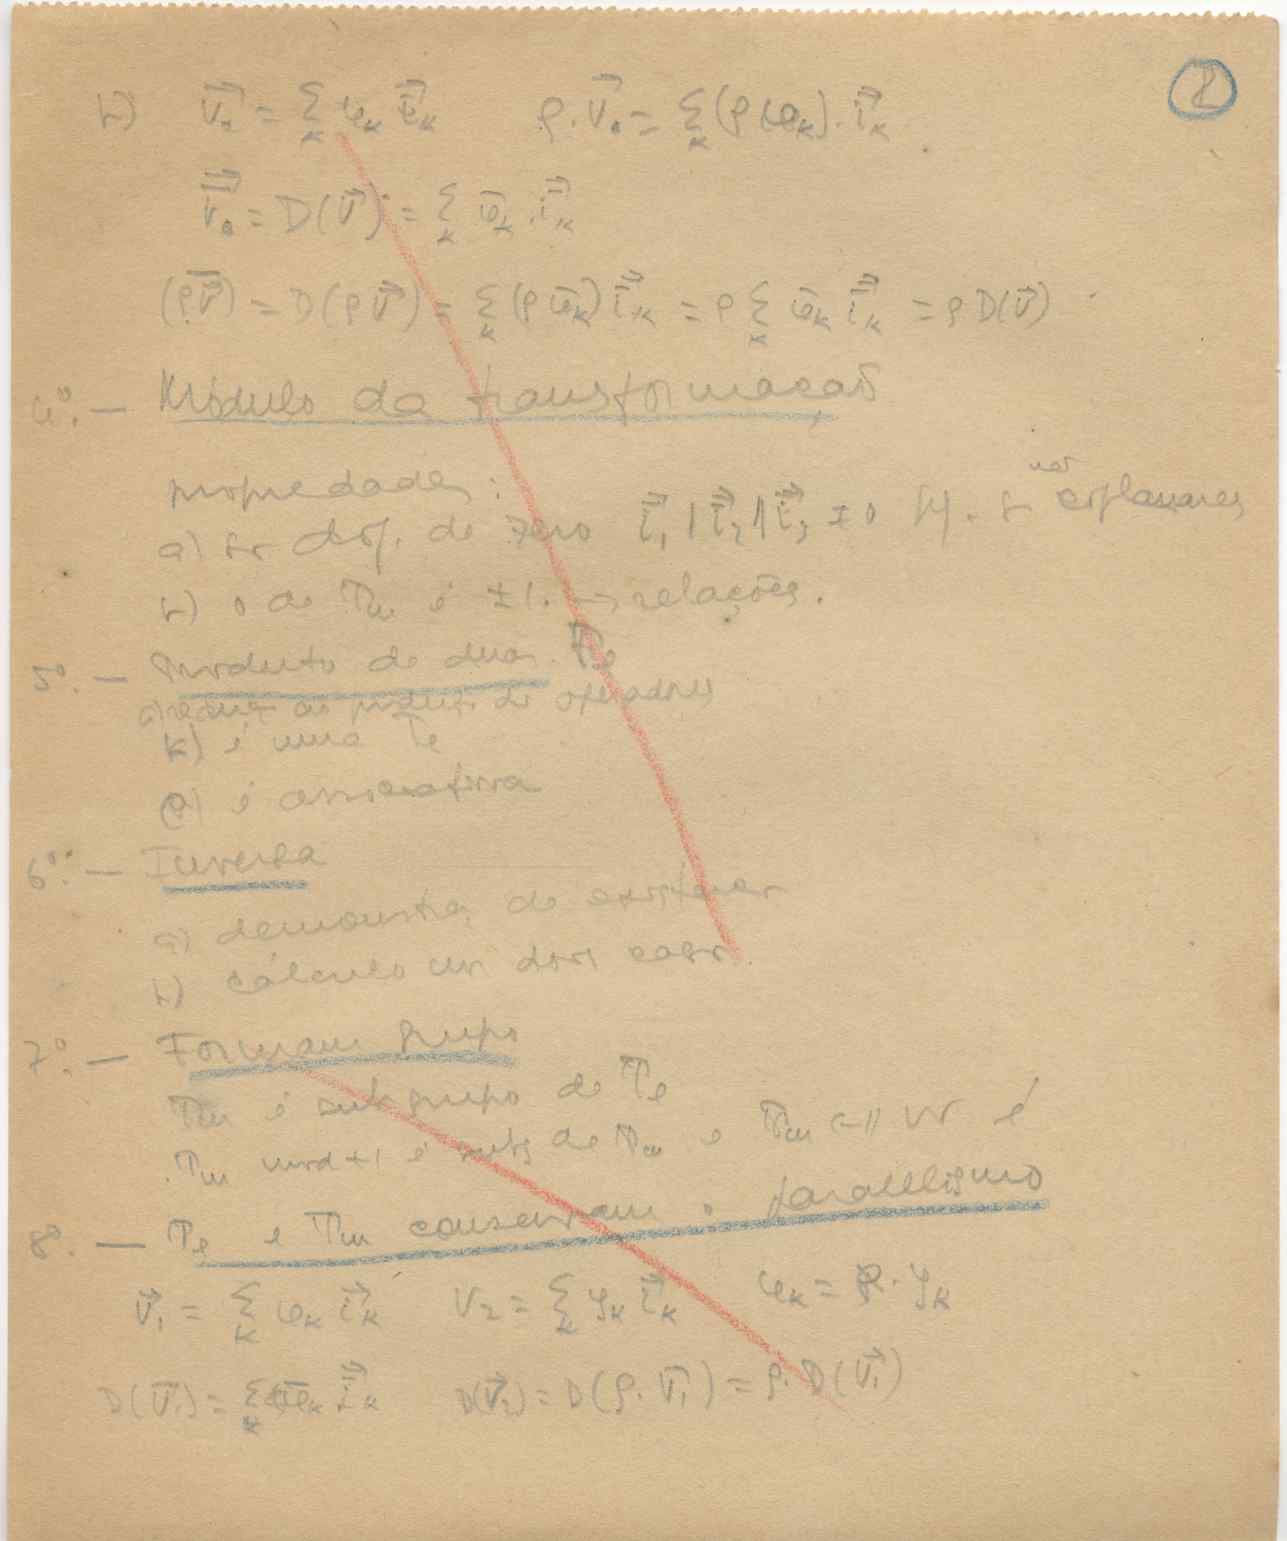 2
b) V₀ = Σₖ φₖ iₖ ρ.V₀ = Σₖ (ρ φₖ). iₖ
V₀ = D(V) = Σₖ φₖ . iₖ
(ρV) = D(ρV) = Σₖ (ρ φₖ) iₖ = ρ Σₖ φₖ iₖ = ρ D(V)
4º. — Módulo da transformação
propriedades:
não
a) ser de zero i₁ | i₂ ∧ i₃ ≠ 0 coplanares
b) o de Tm é ±1. → relações.
5º. — Produto de duas Te
a) reduz ao produto de operadores
b) é uma Te
c) é associativa
6º. — Inversa
a) demonstra. de existencia
b) cálculo um dois casos.
7º. — Formam grupo
Tm é subgrupo de Te
Tm mod +1 é subg de Tm e Tm é
8º. — Te e Tm conservam o parallelismo
V₁ = Σₖ φₖ iₖ V₂ = Σₖ yₖ iₖ φₖ = ρ. yₖ
D(V₁) = Σₖ φₖ iₖ D(V₂) = D(ρ. V₁) = ρ. D(V₁)